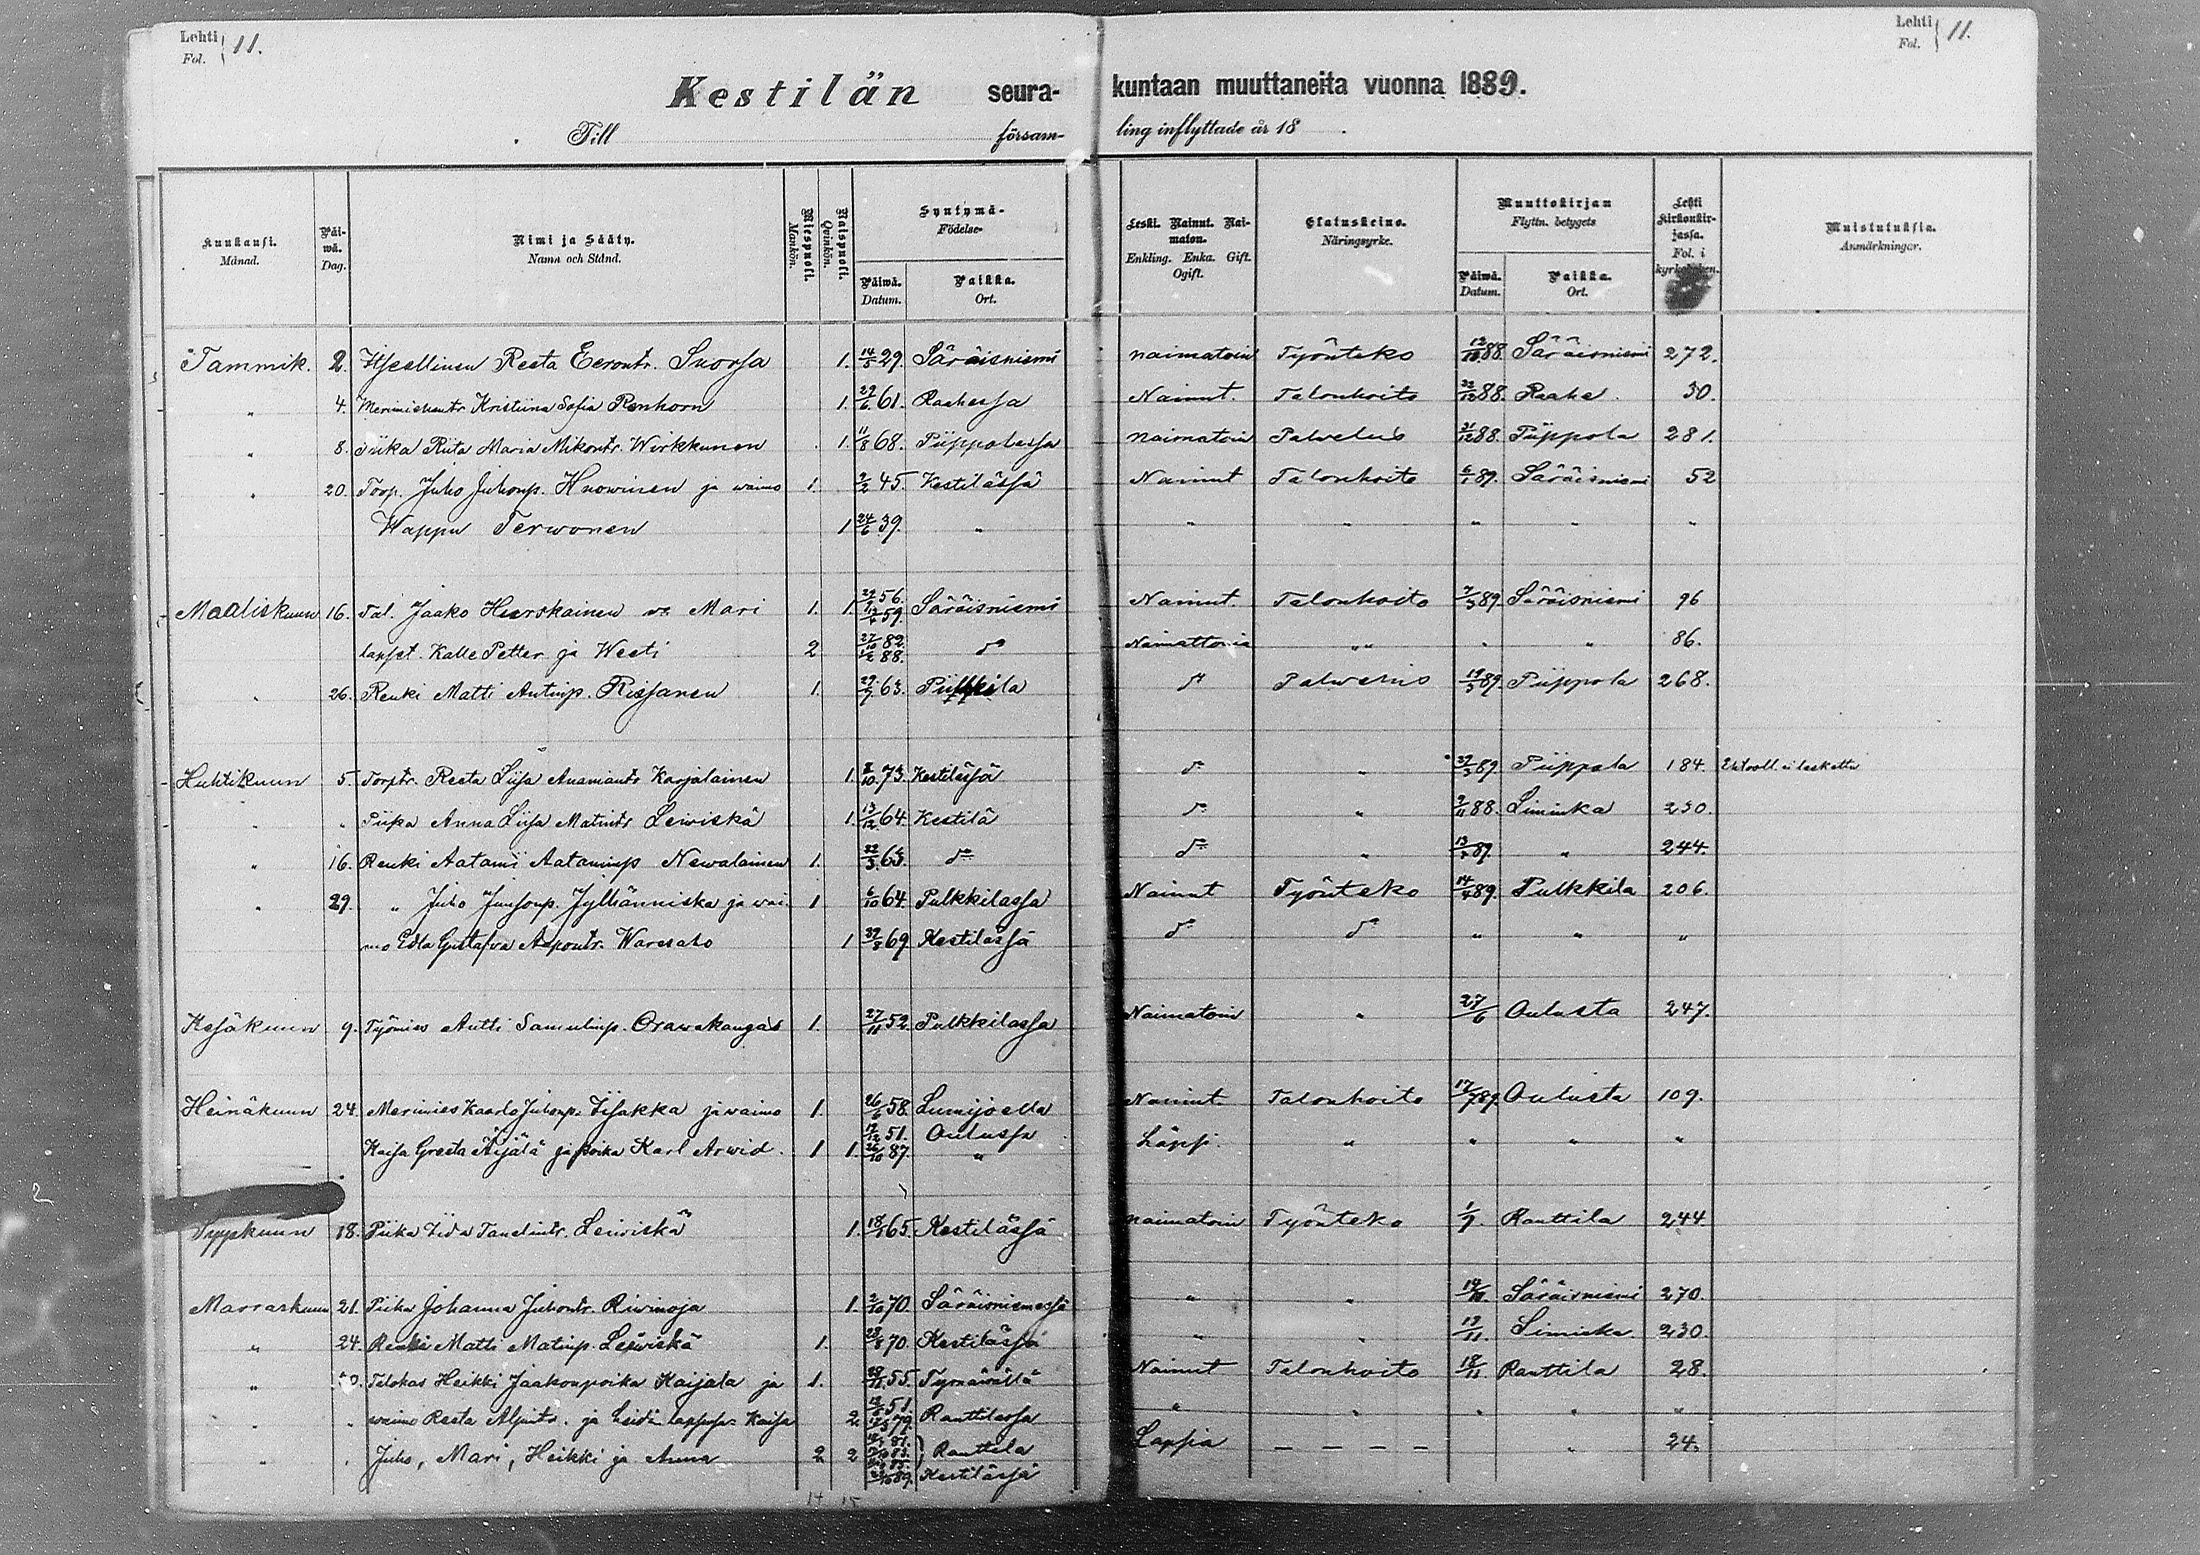 Lehti Fol. 11.
Lehti Fol. 11.
Kestilän seurakuntaan muuttaneita vuonna 1889.
Till försam-ling inflyttade år 18 .
Kuukausi. Månad.
Päiwä. Dag.
Nimi ja Sääty. Namn och Stånd.
Miespuoli. Mankön.
Naispuoli. Qvinkön.
Syntymä- Födelse-
Päiwä. Datum.
Paikka. Ort.
Leski. Nainut. Naimaton. Enkling. Enka. Gift. Ogift.
Elatuskeino. Näringsyrke.
Muuttokirjan Flyttn. betygets
Päiwä. Datum.
Paikka. Ort.
Lehti Kirkonkirjassa. Fol. i kyrkoboken.
Muistutuksia. Anmärkningar.
Tammik. 2. Itsellinen Reeta Eerontr. Suorsa 1. 14/5 29. Säräisniemi naimatoin Työnteko 88. Säräisniemi 272.
" 4. Merimiehentr Kristiina Sofia Renhorn 1. 27/6 61. Raahessa Nainut. Talonhoito 22/12 88. Raahe. 30.
" 8. Piika Riita Maria Mikontr. Wirkkunen 1. 11/8 68. Piippolassa naimatoin Palvelus 21/12 88. Piippola 281.
" 20. Torp. Juho Juhonp. Huowinen ja waimo 1. 2/2 45. Kestilässä Nainut Talonhoito 6/1 89. Säräisniemi 52
Wappu Terwonen 1 24/6 39. " " " " " "
Maaliskuun 16. Tal. Jaako Heerskainen wo Mari 1. 1. 56. 59. Säräisniemi Nainut. Talonhoito 89. Säräisniemi 96
lapset. Kalle Petter ja Weeti 2 27/10 82. 88. do Naimattomia " " " " 86.
" 26. Renki Matti Antinp. Rissanen 1. 29/7 63. do Palwelus 19/3 89. Piippola 268.
Huhtikuun 5. Torptr. Reeta Liisa Ananiantr Karjalainen 1. 73. Kestilässä do " 89. Piippola 184.
" " Piika Anna Liisa Matintr Leiwiskä 1. 13/12 64. Kestilä do " 9/11 88. Liminka 230.
" 16. Renki Aatami Aataminp Newalainen 1. 22/3 63. do do " 89. " 244.
" 29. " Juho Juhonp. Jylhänniska ja wai- 1 6/10 64. Pulkkilassa Nainut Työnteko 14/4 89. Pulkkila 206.
mo Edla Gustafva Aapontr. Waresaho 1 69. Kestilässä do do " " "
Kesäkuun 9. Työmies Antti Samulinp. Orawakangas 1. 27/11 52. Pulkkilassa Naimatoin " 27/6 Oulusta 247.
Heinäkuun 24. Merimies Kaarlo Juhonp. Iisakka ja waimo 1. 26/6 58. Lumijoella Nainut. Talonhoito 17/7 89. Oulusta 109.
Kaisa Greeta Äijälä ja poika Karl Arwid. 1 1. 51. 26/10 87. Oulussa " Lapsi. " " " "
Syyskuun 18. Piika Iida Tanelintr. Leiwiskä 1. 65. Kestilässä naimatoin Työnteko 1/9. Ranttila 244
Marraskuun 21. Piika Johanna Juhontr. Riwinoja 1. 2/10 70. Säräisniemessä " " Säräisniemi 270.
" 24. Renki Matti Matinp. Leiwiskä 1. 70. Kestilässä " " 19/11. Liminka 230.
" Talokas Heikki Jaakonpoika Kaijala ja 1. 55. Tyrnäwällä Nainut Talonhoito 18/11 Ranttila 28.
" " waimo Reeta ja heidän lapsensa Kaisa 2 51. 79. Ranttilassa " " " " "
" . Juho, Mari, Heikki ja Anna 2 2 Ranttila Lapsia – – – – " 24.
89. Kestilässä
14 15